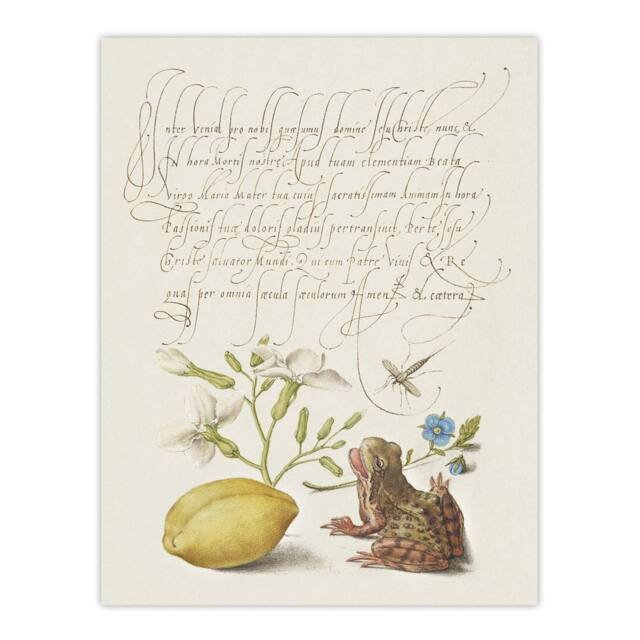 Inter veniat pro nobis quæsumus domine Jesu Christe, nunc, &
In hora Mortis nostre, Apud tuam clementiam Beata
Virgo Maria Mater tua cuius sacratissimam Animam In hora
Passionis tuæ doloris gladius pertransiuit, Per te Jesu
Christe salvator Mundi. Qui cum Patre Vivis & Re
gnas per omnia sæcula sæculorum Amen, & cætera